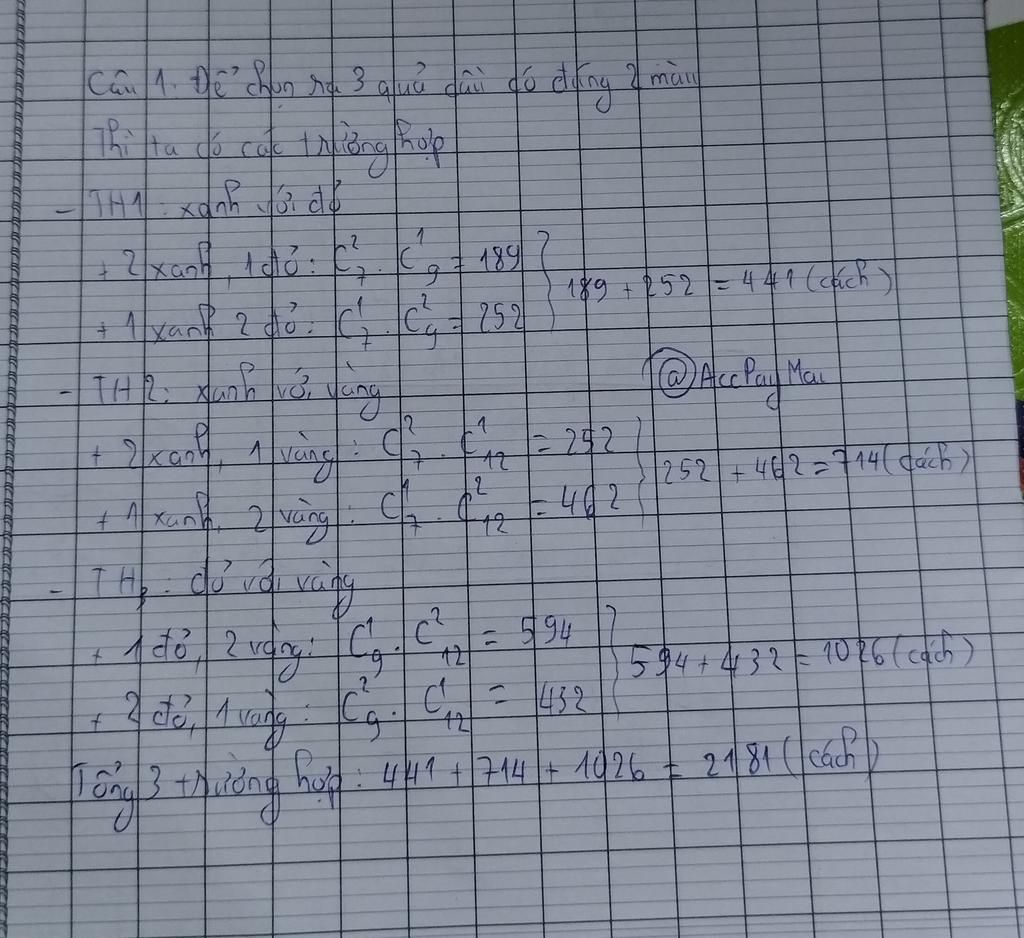 Câu 1. Để chọn ra 3 quả cầu có đúng 2 màu
Thì ta có các trường hợp
- TH1: xanh với đỏ
+ 2 xanh, 1 đỏ: C²₇ . C¹₉ = 189
+ 1 xanh 2 đỏ: C¹₇ . C²₉ = 252
189 + 252 = 441 (cách)
@AccPayMai
- TH2: xanh với vàng
+ 2 xanh, 1 vàng: C²₇ . C¹₁₂ = 252
+ 1 xanh, 2 vàng: C¹₇ . C²₁₂ = 462
252 + 462 = 714 (cách)
- TH3: đỏ với vàng
+ 1 đỏ, 2 vàng: C¹₉ . C²₁₂ = 594
+ 2 đỏ, 1 vàng: C²₉ . C¹₁₂ = 432
594 + 432 = 1026 (cách)
Tổng 3 trường hợp: 441 + 714 + 1026 = 2181 (cách)